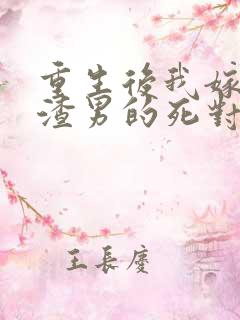 重生後我嫁
渣男的死對
王長慶